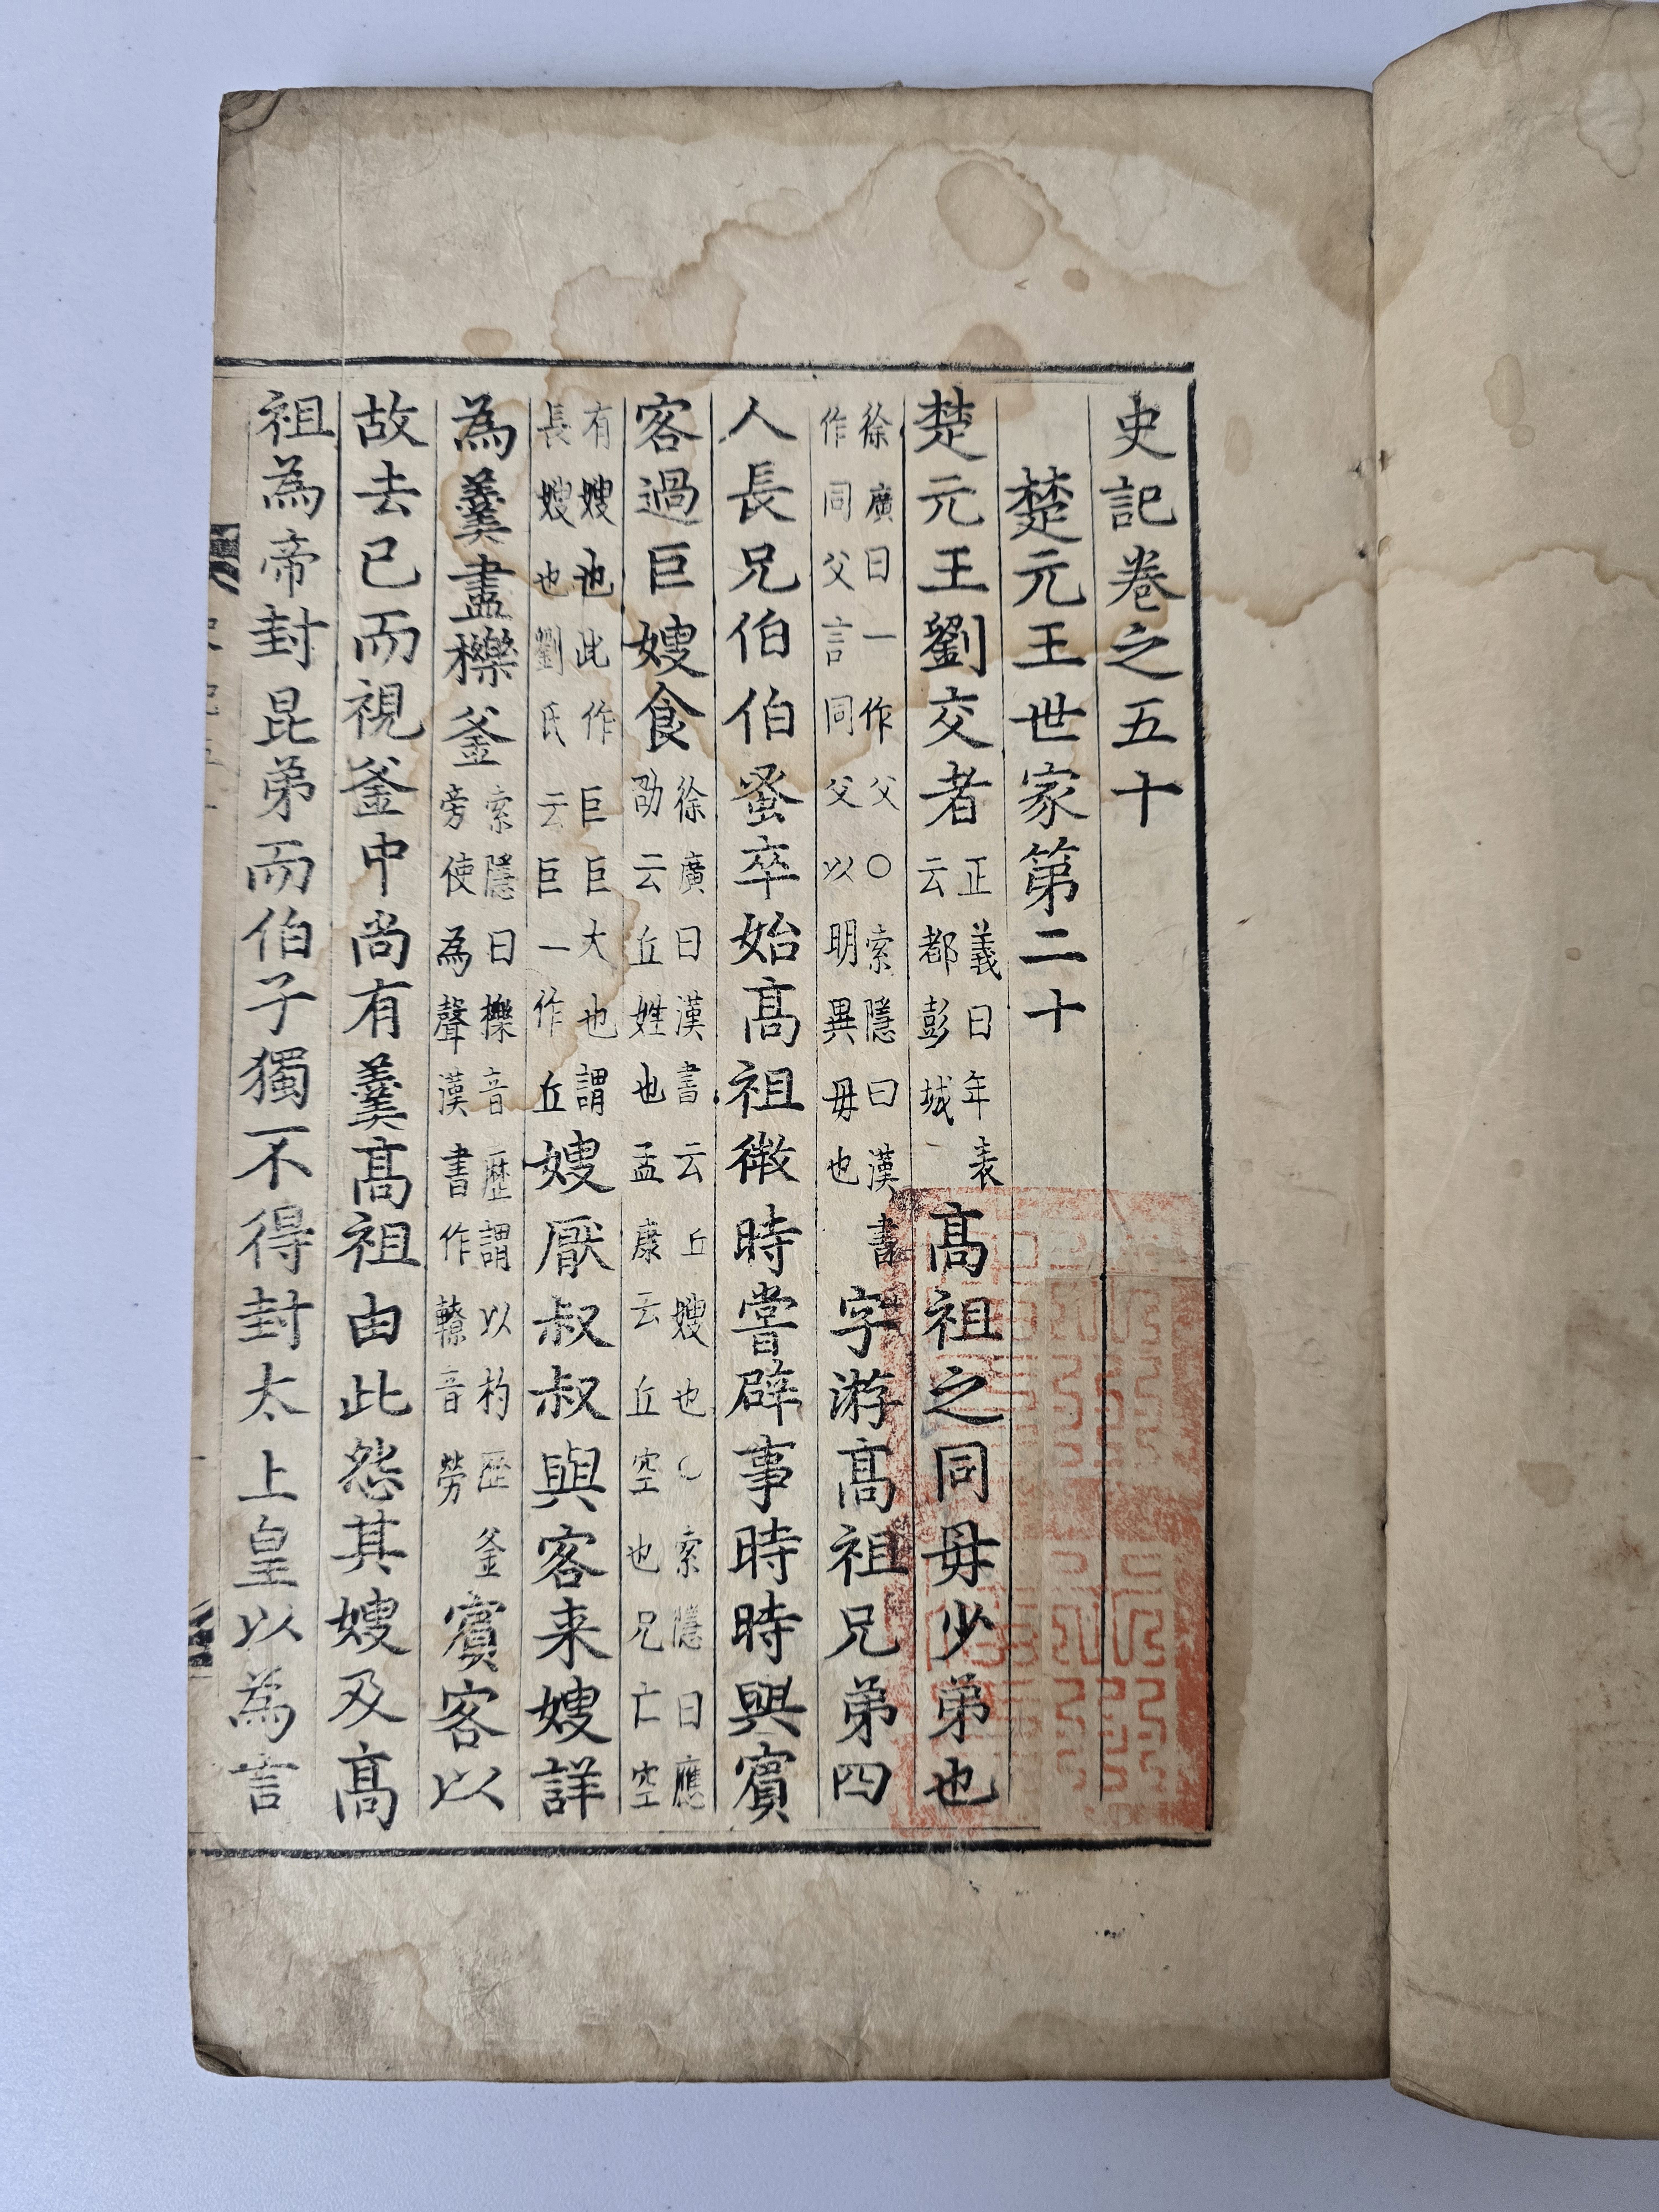 史記卷之五十
楚元王世家第二十
楚元王劉交者正義曰年表云都彭城髙祖之同毋少弟也
徐廣曰一作父○索隱曰漢書作同父言同父以明異毋也字游髙祖兄弟四
人長兄伯伯蚤卒始髙祖微時嘗辟事時時與賓
客過巨嫂食徐廣曰漢書云丘嫂也○索隱曰應劭云丘姓也孟康云丘空也兄亡空
有嫂也此作巨巨大也謂長嫂也劉氏云巨一作丘嫂厭叔叔與客来嫂詳
為羹盡櫟釜索隱曰櫟音歷謂以杓歷釜旁使為聲漢書作轑音勞賓客以
故去已而視釜中尚有羹髙祖由此怨其嫂及髙
祖為帝封昆弟而伯子獨不得封太上皇以為言